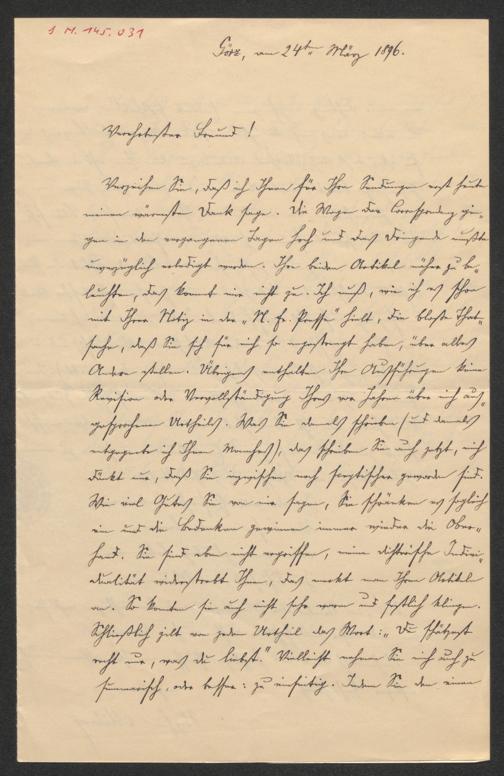 1 N. 145.031
Görz, am 24ten März 1896.
Verehrtester Freund!
Verzeihen Sie, daß ich Ihnen für Ihre Sendungen erst heute
meinen wärmsten Dank sage. Die Wogen der Correspondenz gin-
gen in den vergangenen Tagen hoch und das Dringende mußte
unverzüglich erledigt werden. Ihre beiden Artikel näher zu be-
leuchten, das kommt mir nicht zu. Ich muß, wie ich es schon
mit Ihrer Notiz in der „N. Fr. Presse" hielt, die bloße That-
sache, daß Sie sich für mich so angestrengt haben, über alles
Andere stellen. Übrigens enthalten Ihre Ausführungen keine
Revision oder Vervollständigung Ihres vor Jahren über mich aus-
gesprochenen Urtheils. Was Sie damals schrieben (und damals
entgegnete ich Ihnen Manches), das schreiben Sie auch jetzt, mich
dünkt nur, daß Sie inzwischen noch skeptischer geworden sind.
Wie viel Gutes Sie von mir sagen, Sie schränken es sogleich
ein und die Bedenken gewinnen immer wieder die Ober-
hand. Sie sind eben nicht ergriffen, meine dichterische Indivi-
dualität widerstrebt Ihnen, das merkt man Ihren Artikeln
an. So konnten sie auch nicht sehr warm und festlich klingen.
Schließlich gilt von jedem Urtheil das Wort: „Du schätzest
recht nur, was du liebst." Vielleicht nehmen Sie mich auch zu
summarisch, oder besser: zu einseitig. Indem Sie den einen